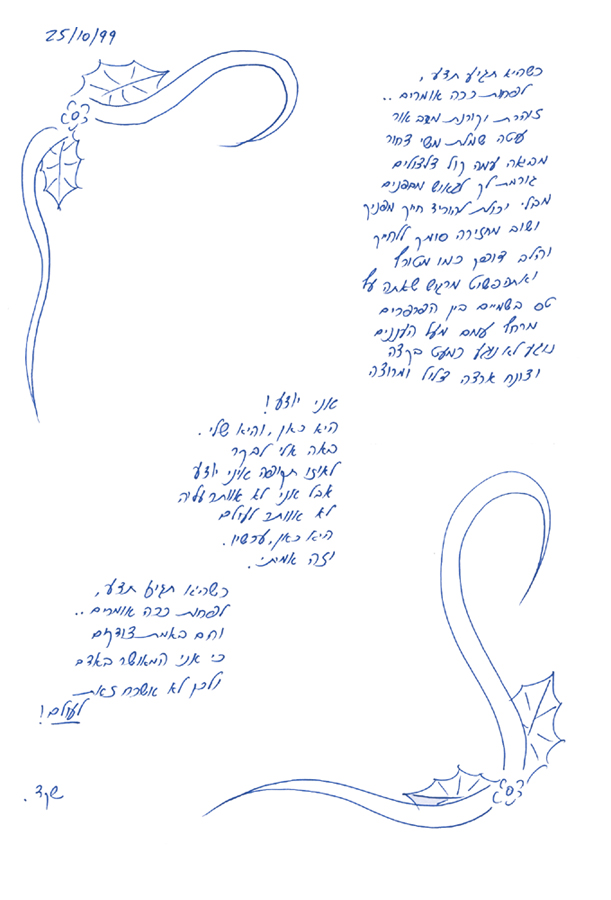 25/10/99
כשהיא תגיע תדע,
לפחות ככה אומרים..
זוהרת וקורנת מרוב אור
עוטה שמלת משי צחור
מביאה עמה קול צלצולים
גורמת לך לנאוש מפנים
מבלי יכולת להוריד חייך מפניך
ושוב מחזירה סומק ללחייך
והלב דופק כמו מטורף
ואתה פשוט מרגיש שאתה עף
טס בשמיים בין הפרפרים
מרחף עמם מעל העננים
נוגע לא נוגע כמעט בקצה
וצונח ארצה צלול ומרוצה
אני יודע!
היא כאן, והיא שלי.
באה אלי לבקר
לאיזו תקופה איני יודע
אבל אני לא אוותר עליה
לא אוותר לעולם
היא כאן, עכשיו.
וזה אמיתי.
כשהיא תגיע תדע,
לפחות ככה אומרים..
והם באמת צודקים
כי אני המאושר באדם
ולכן לא אשכח זאת
לעולם!
שקד.